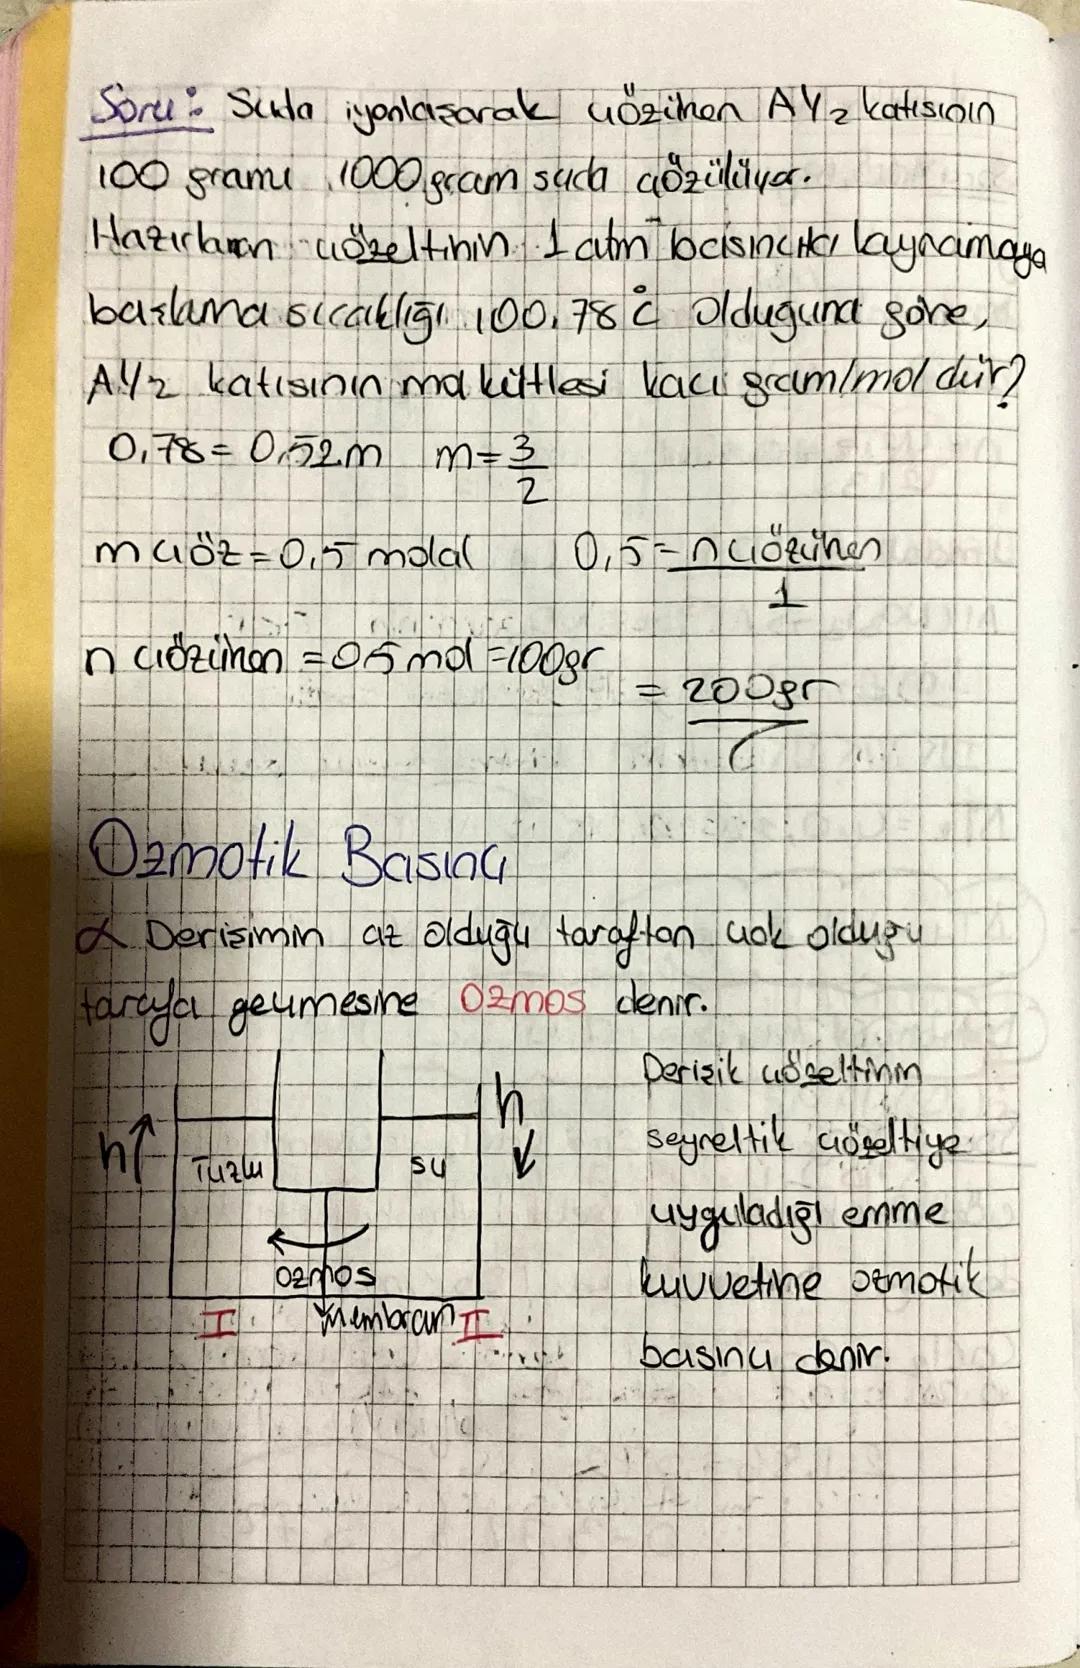 Soru: Suda iyonlaşarak çözünen AY2 katısının
100 gramı 1000 gram suda çözülüyor.
Hazırlanan çözeltinin 1 atm basınçtaki kaynamaya
başlama sıcaklığı 100,78°C olduğuna göre,
AY2 katısının mol kütlesi kaç gram/mol dür?
0,78 = 0,52.m m = 3/2
m çöz = 0,5 molal 0,5 = n çözünen / 1
n çözünen = 0,5 mol = 100gr
= 200gr
Ozmotik Basınç
Derişimin az olduğu taraftan çok olduğu
tarafa geçmesine Ozmos denir.
Derişik çözeltinin
seyreltik çözeltiye
uyguladığı emme
kuvvetine ozmotik
basınç denir.
h↑ Tuzlu su h↓
ozmos
I membran II